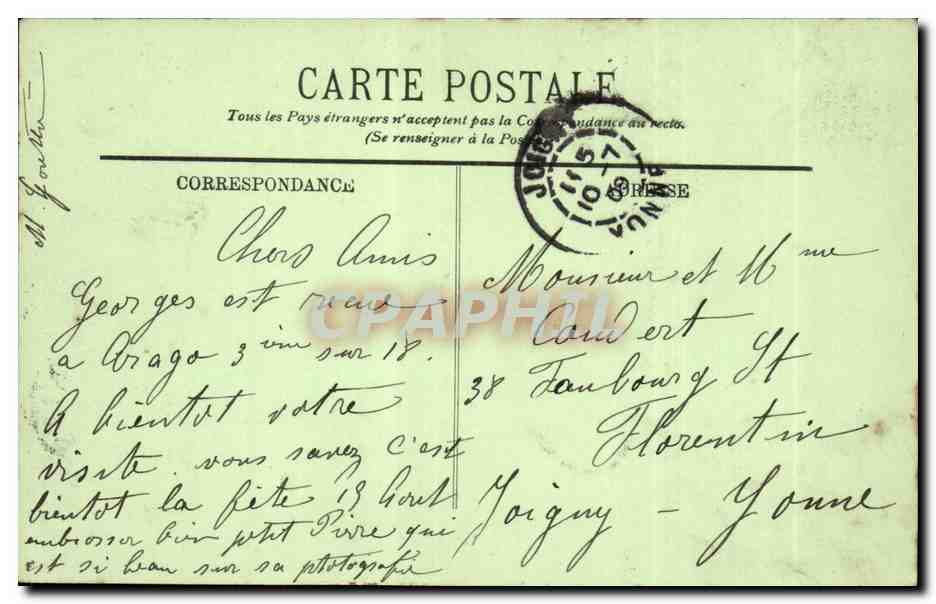 CARTE POSTALE
Tous les Pays étrangers n'acceptent pas la Correspondance au recto.
(Se renseigner à la Poste)
CORRESPONDANCE
ADRESSE
JOIGNY
11 5
10 - 7
09
YONNE
M.
Chers Amis
Georges est recue
a Arago 3ième sur 18.
A bientot votre
visite. vous savez c'est
bientot la fête 15 Aout
embrasser bien petit Pierre qui
est si beau sur sa photografie
Monsieur et Mme
38 Faubourg St
Florentin
Joigny - Yonne
CPAPHIL